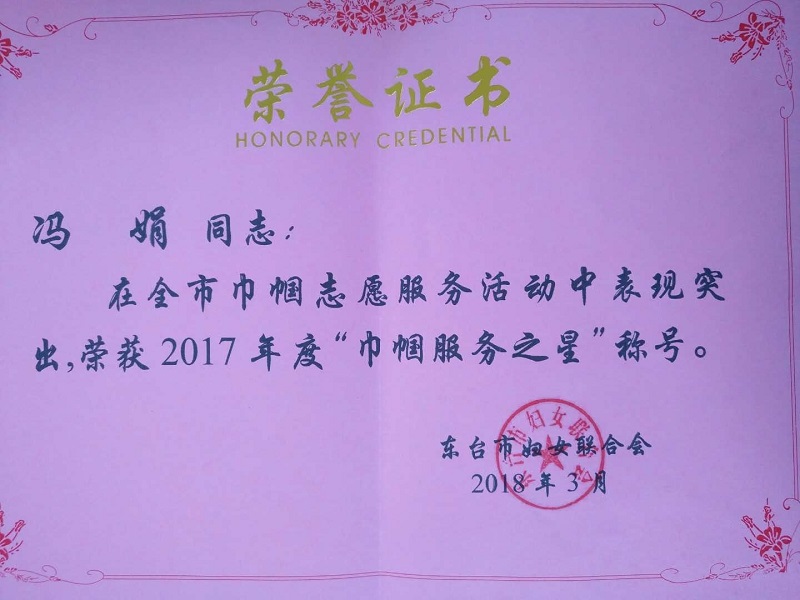 荣誉证书
HONORARY CREDENTIAL
冯 娟 同志：
在全市巾帼志愿服务活动中表现突
出,荣获2017年度“巾帼服务之星”称号。
东台市妇女联合会
2018年3月
东台市妇女联合会